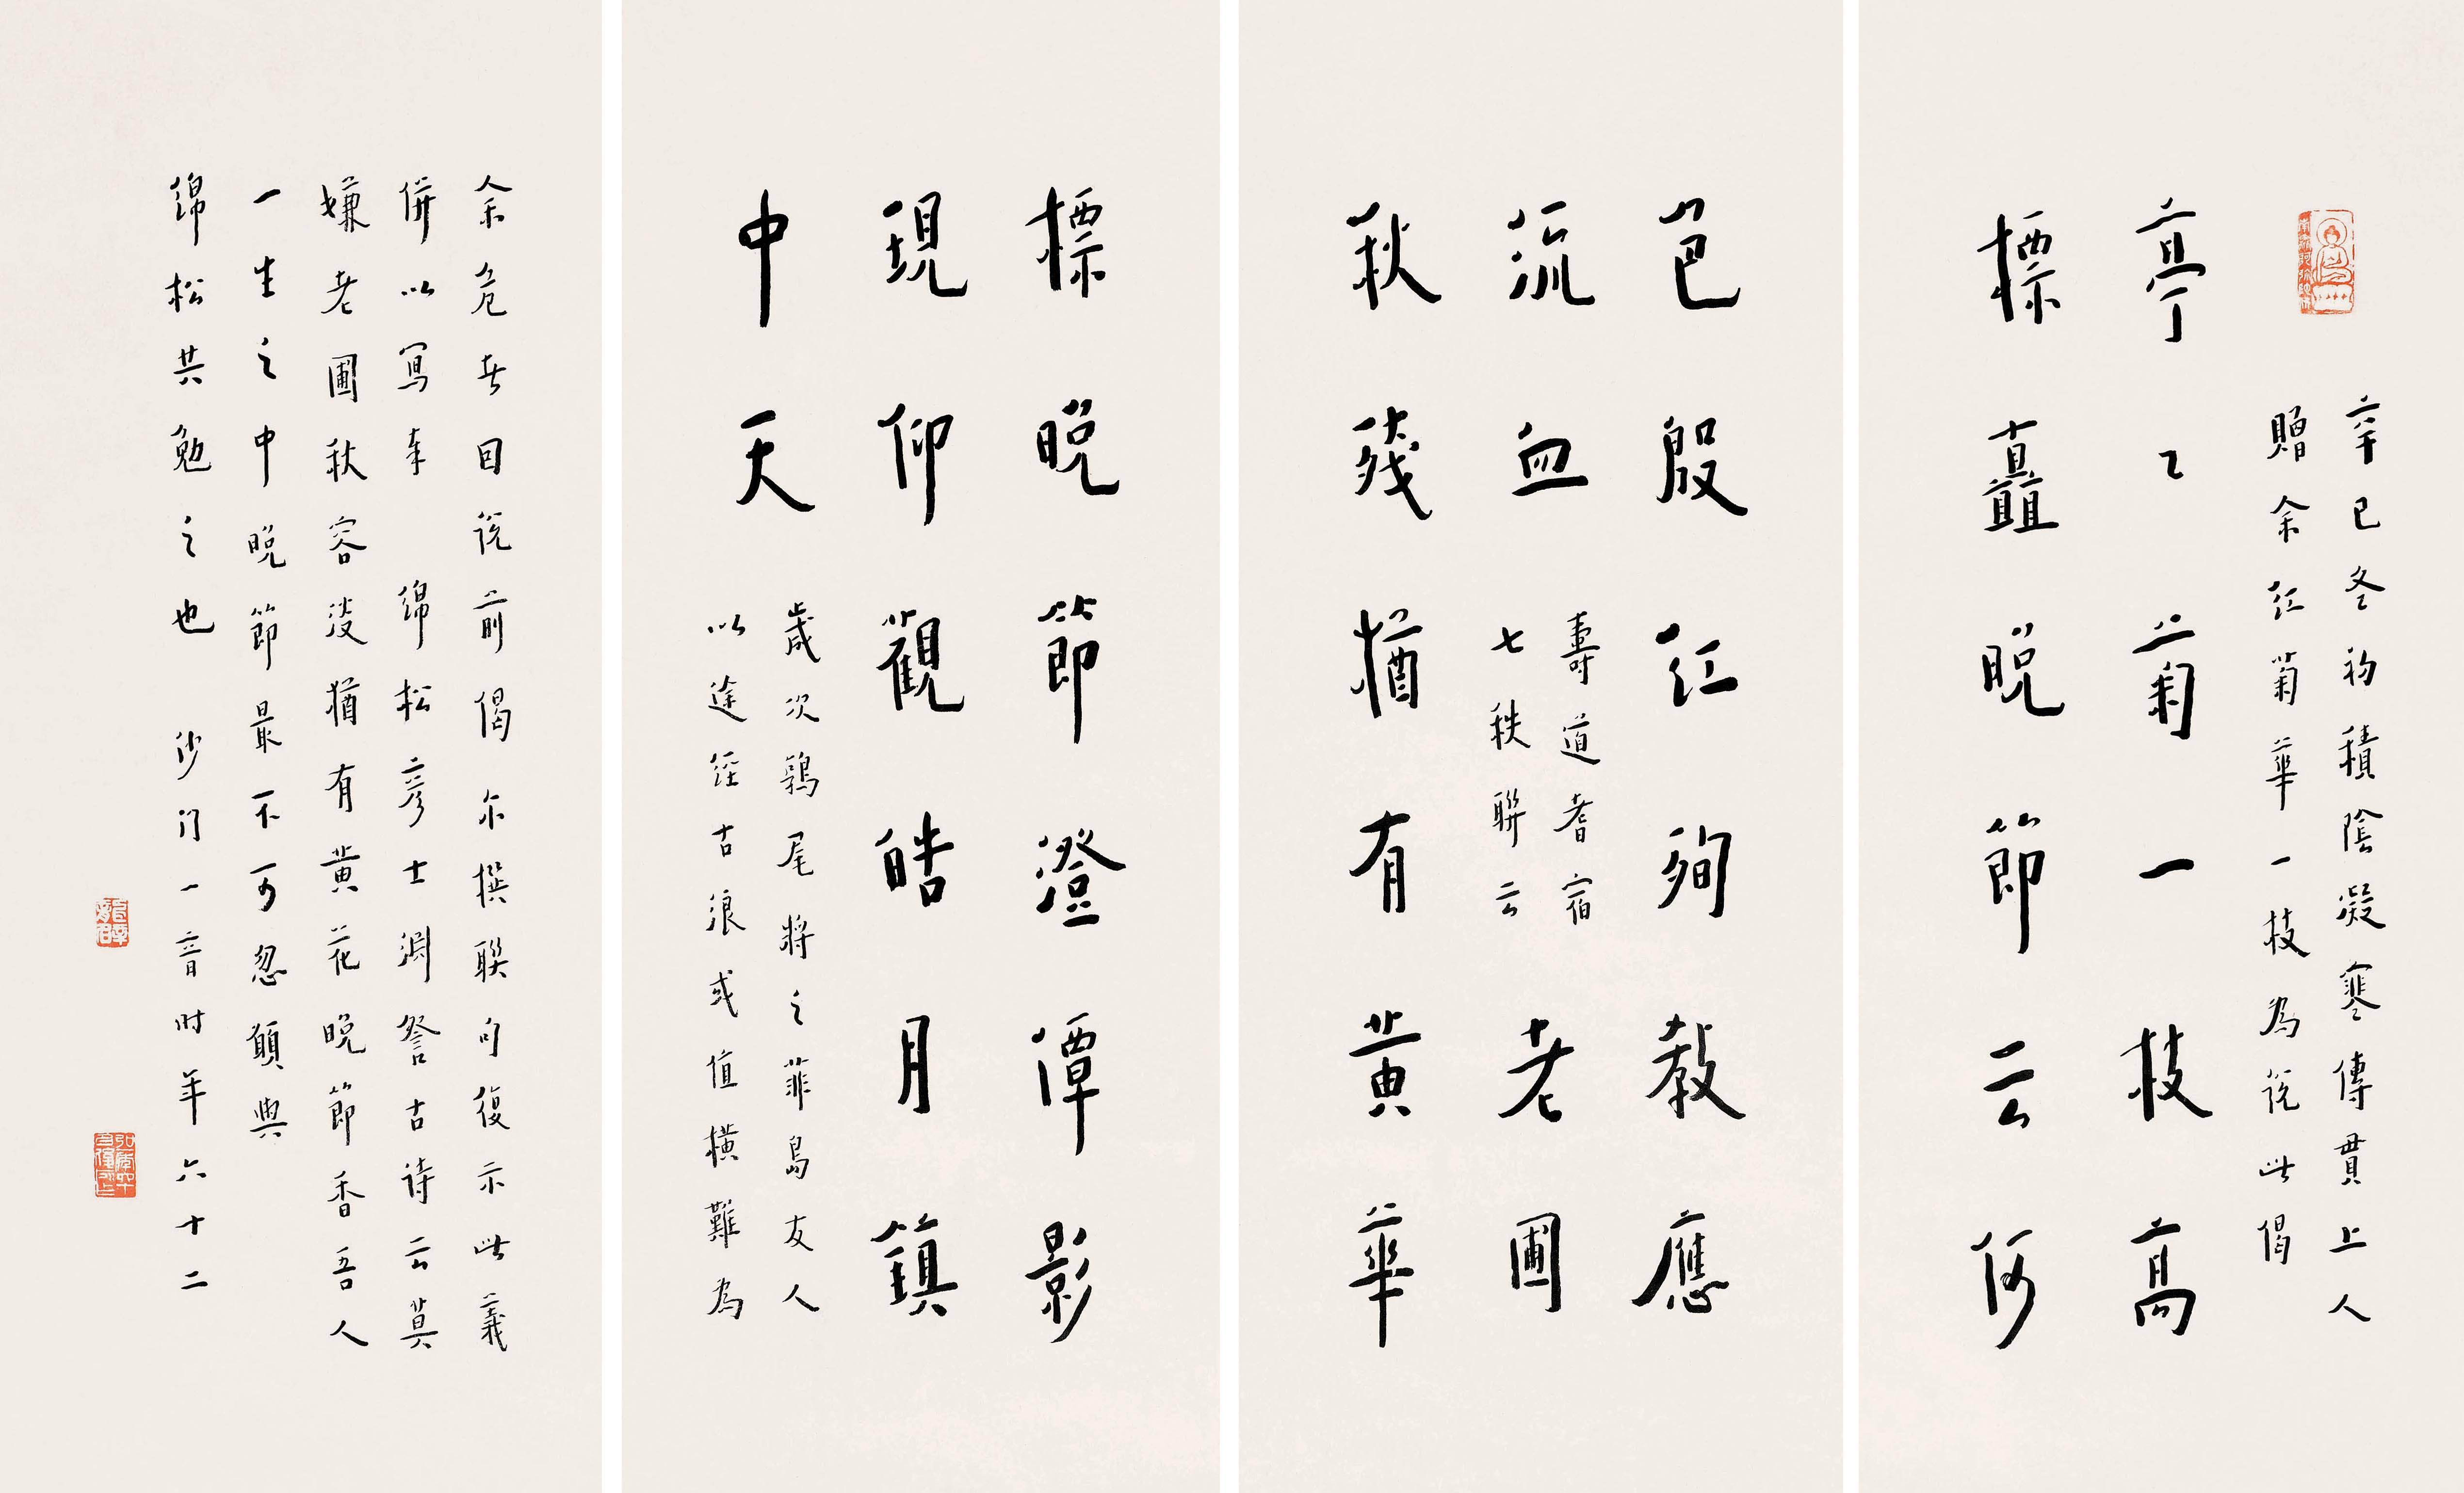 辛巳冬初積陰凝寒傳貫上人
贈余紅菊華一枝為説此偈
亭〻菊一枝高
標矗晚節云何
色殷紅殉教應
流血
壽道耆宿
七秩聯云
老圃
秋殘猶有黃華
標晚節澄潭影
現仰觀皓月鎮
中天
歲次鶉尾將之菲島友人
以途徑古浪或值橫難為
余危者因説前偈尒撰聯句復示此義
併以寫奉 綿松彥士淵詧古詩云莫
嫌老圃秋容淡猶有黃花晚節香吾人
一生之中晚節最不可忽願與
綿松共勉之也 沙門一音時年六十二